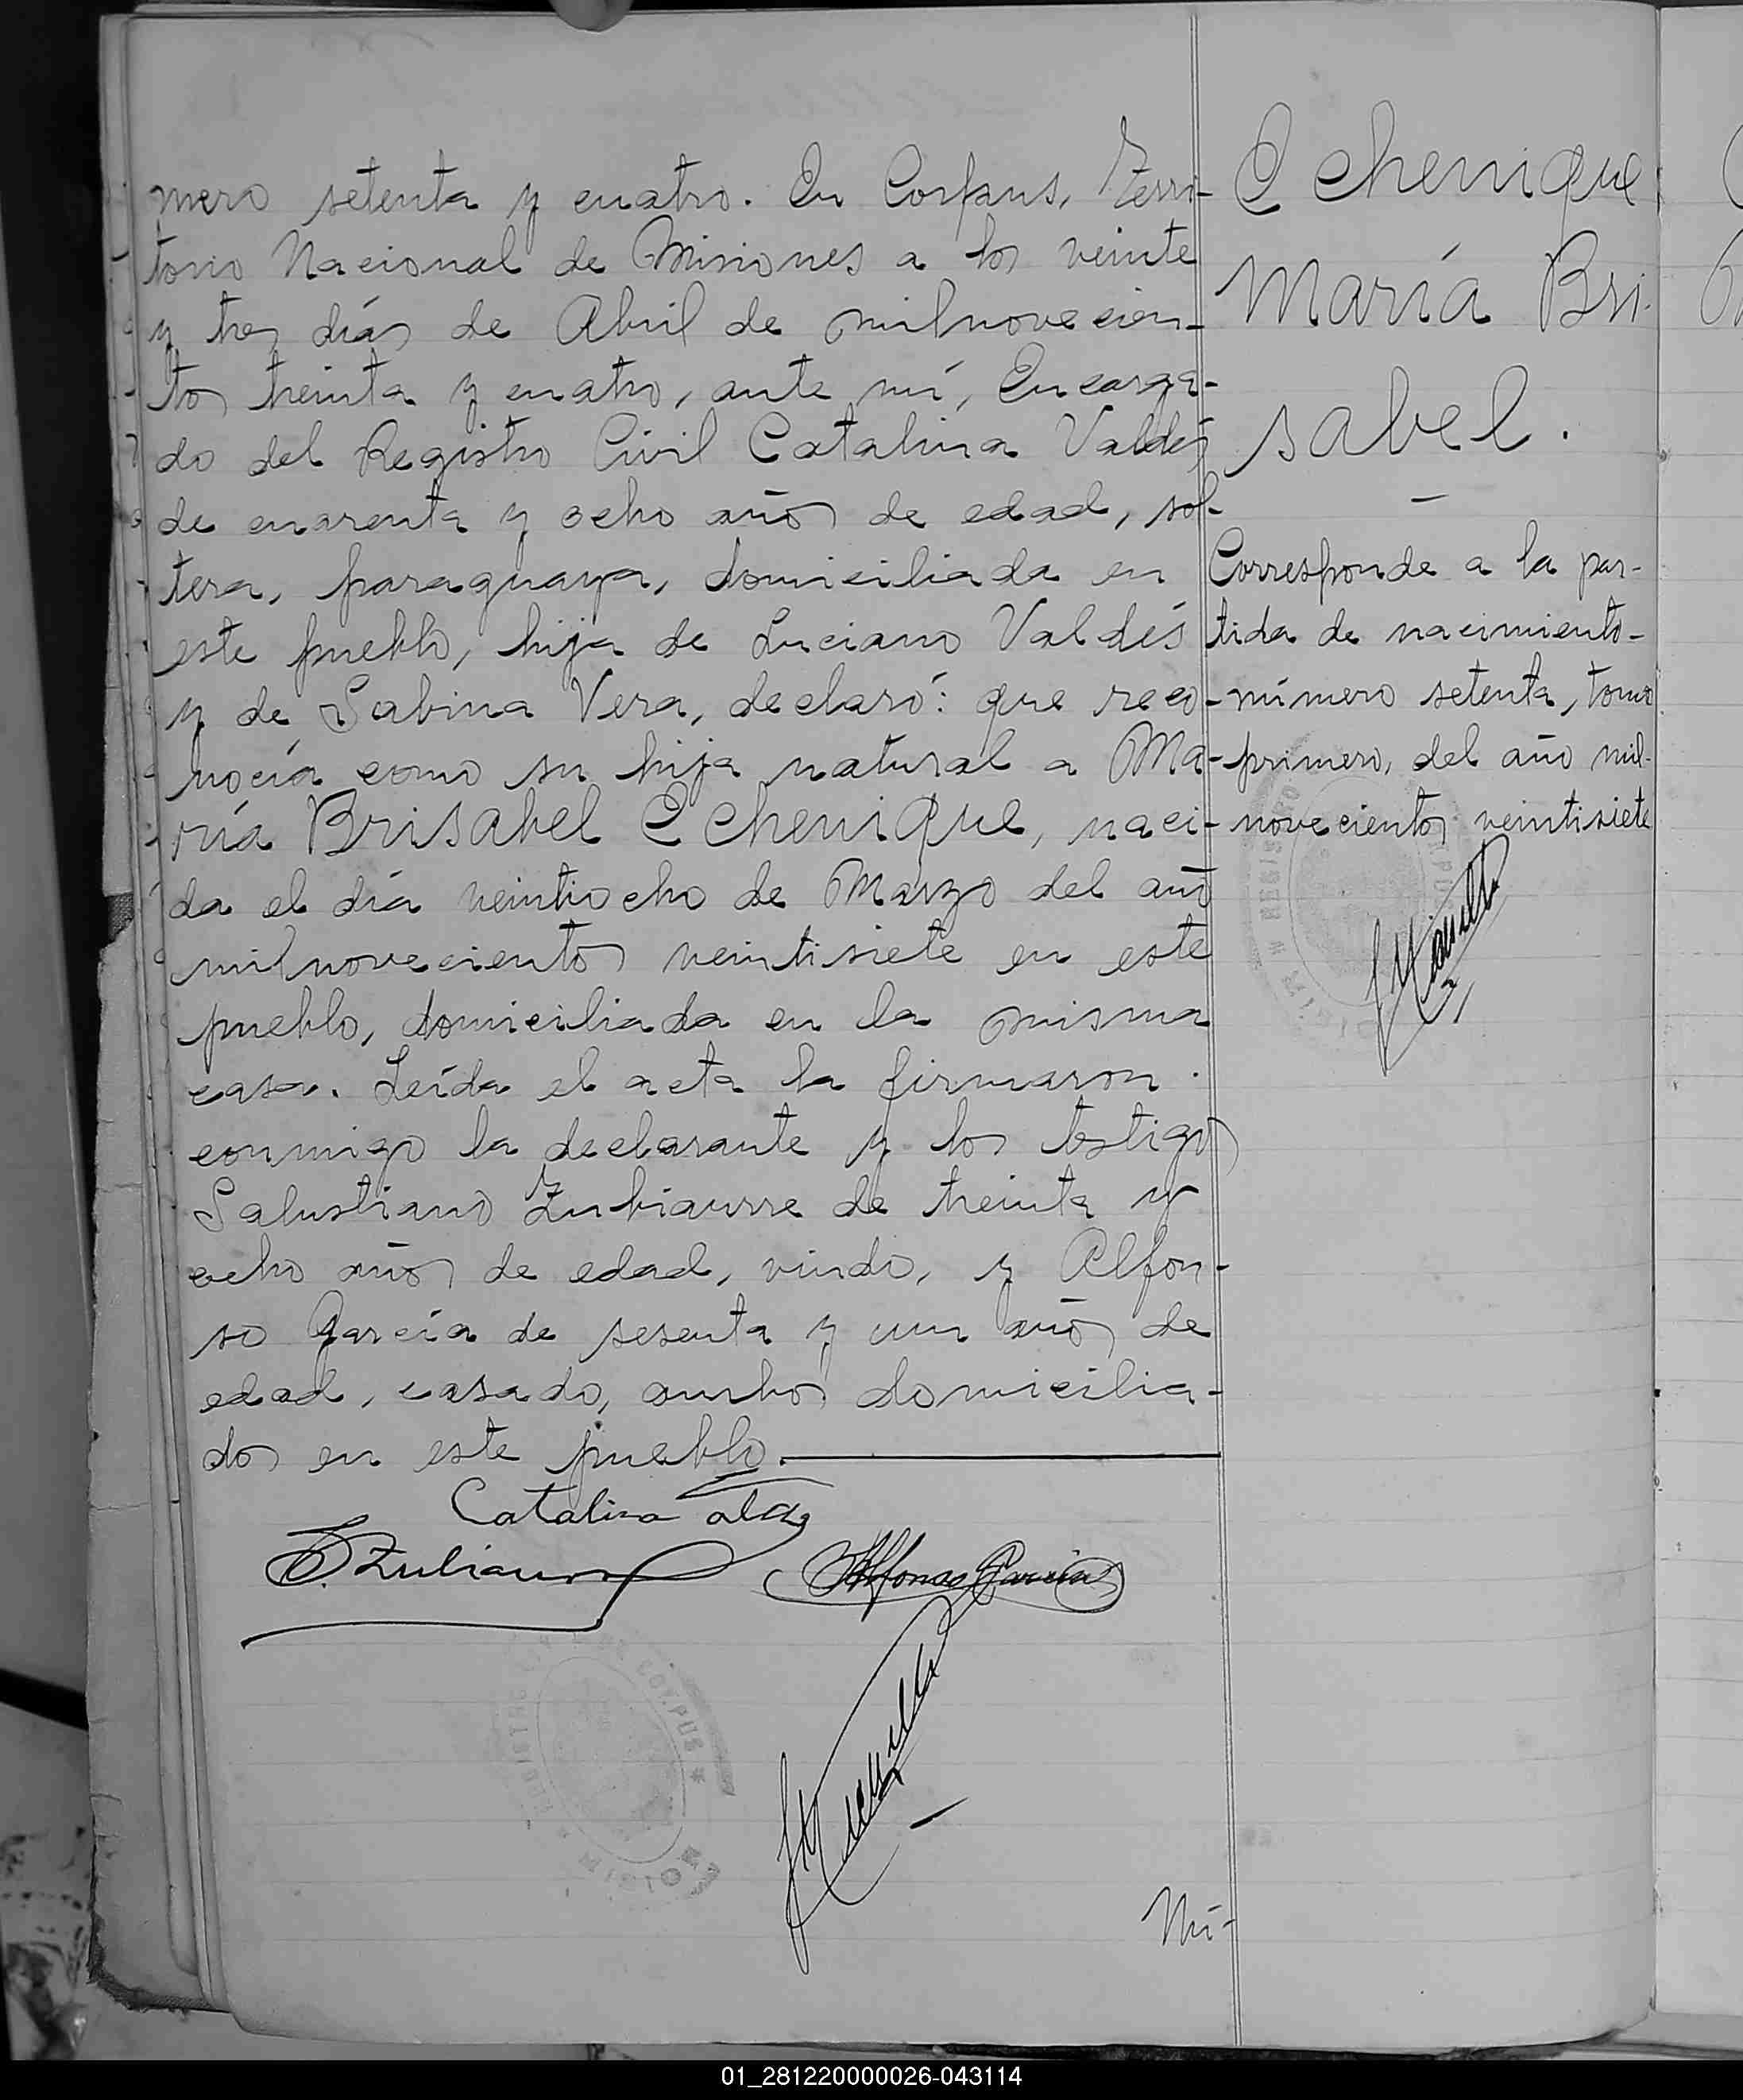 mero setenta y cuatro. En Corpus, Terri-
torio Nacional de Misiones a los veinte
y tres días de Abril de milnovecien-
tos treinta y cuatro, ante mí, Encarga-
do del Registro Civil Catalina Valdés
de cuarenta y ocho años de edad, sol-
tera, paraguaya, domiciliada en
este pueblo, hija de Luciano Valdés
y de Sabina Vera, declaró: que reco-
nocía como su hija natural a Ma-
ría Brisabel Echenique, naci-
da el día veintiocho de Marzo del año
milnovecientos veintisiete en este
pueblo, domiciliada en la misma
casa. Leída el acta la firmaron
conmigo la declarante y los testigos
Salustiano Zubiaurre de treinta y
ocho años de edad, viudo, y Alfon-
so García de sesenta y un años de
edad, casado, ambos domicilia-
dos en este pueblo.
Catalina
Alfonso Garcia
REGISTRO CORPUS
Nú-
Echenique
María Bri-
sabel.
Corresponde a la par-
tida de nacimiento
número setenta, tomo
primero, del año mil-
novecientos veintisiete
REGISTRO
01_281220000026-043114